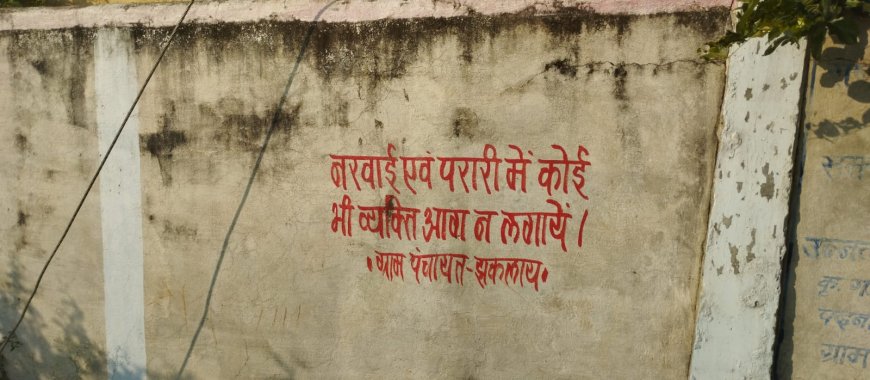 नरवाई एवं परारी में कोई
भी व्यक्ति आग न लगायें।
• ग्राम पंचायत-झकलाय •
ग्राम